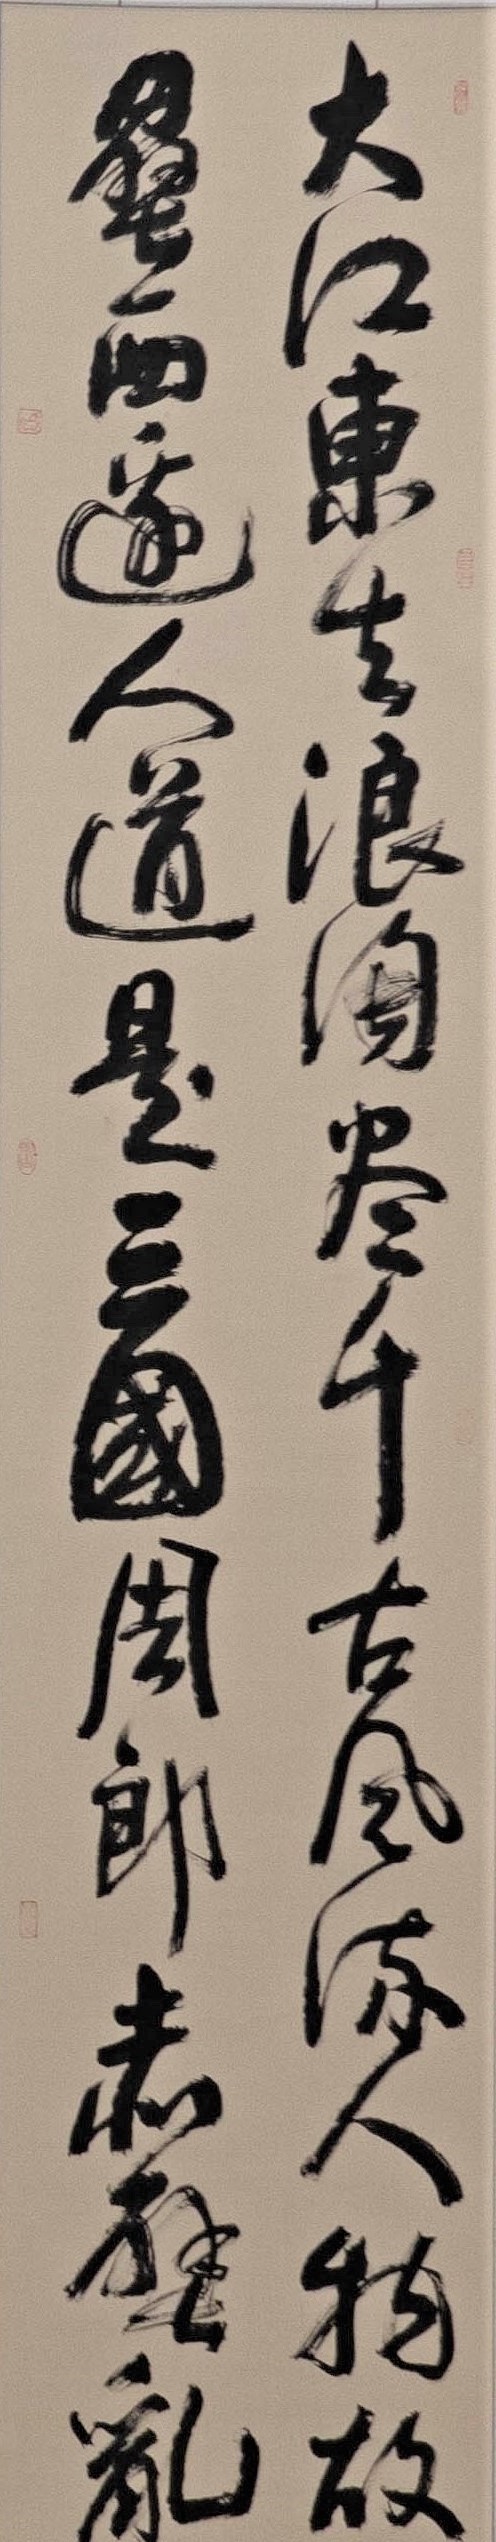 大江東去浪淘盡千古風流人物故
壘西邊人道是三國周郎赤壁亂